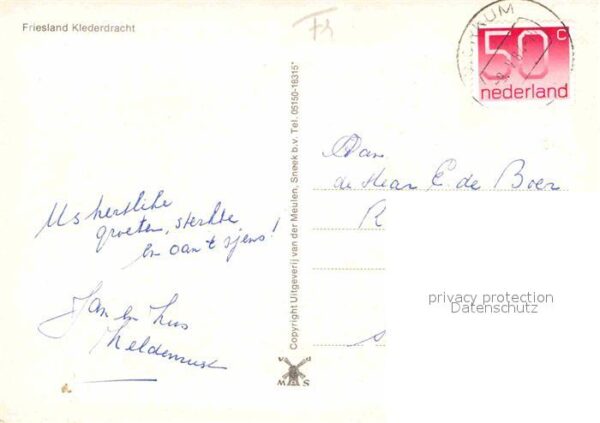 Friesland Klederdracht
Fr
50 c
nederland
Copyright Uitgeverij van der Meulen, Sneek b.v. Tel. 05150-18315*
Aan
de Heer E. de Boer
R
S
Us hertlike
groeten, sterkte
en oan't sjens!
Jan en
v d
M S
privacy protection
Datenschutz